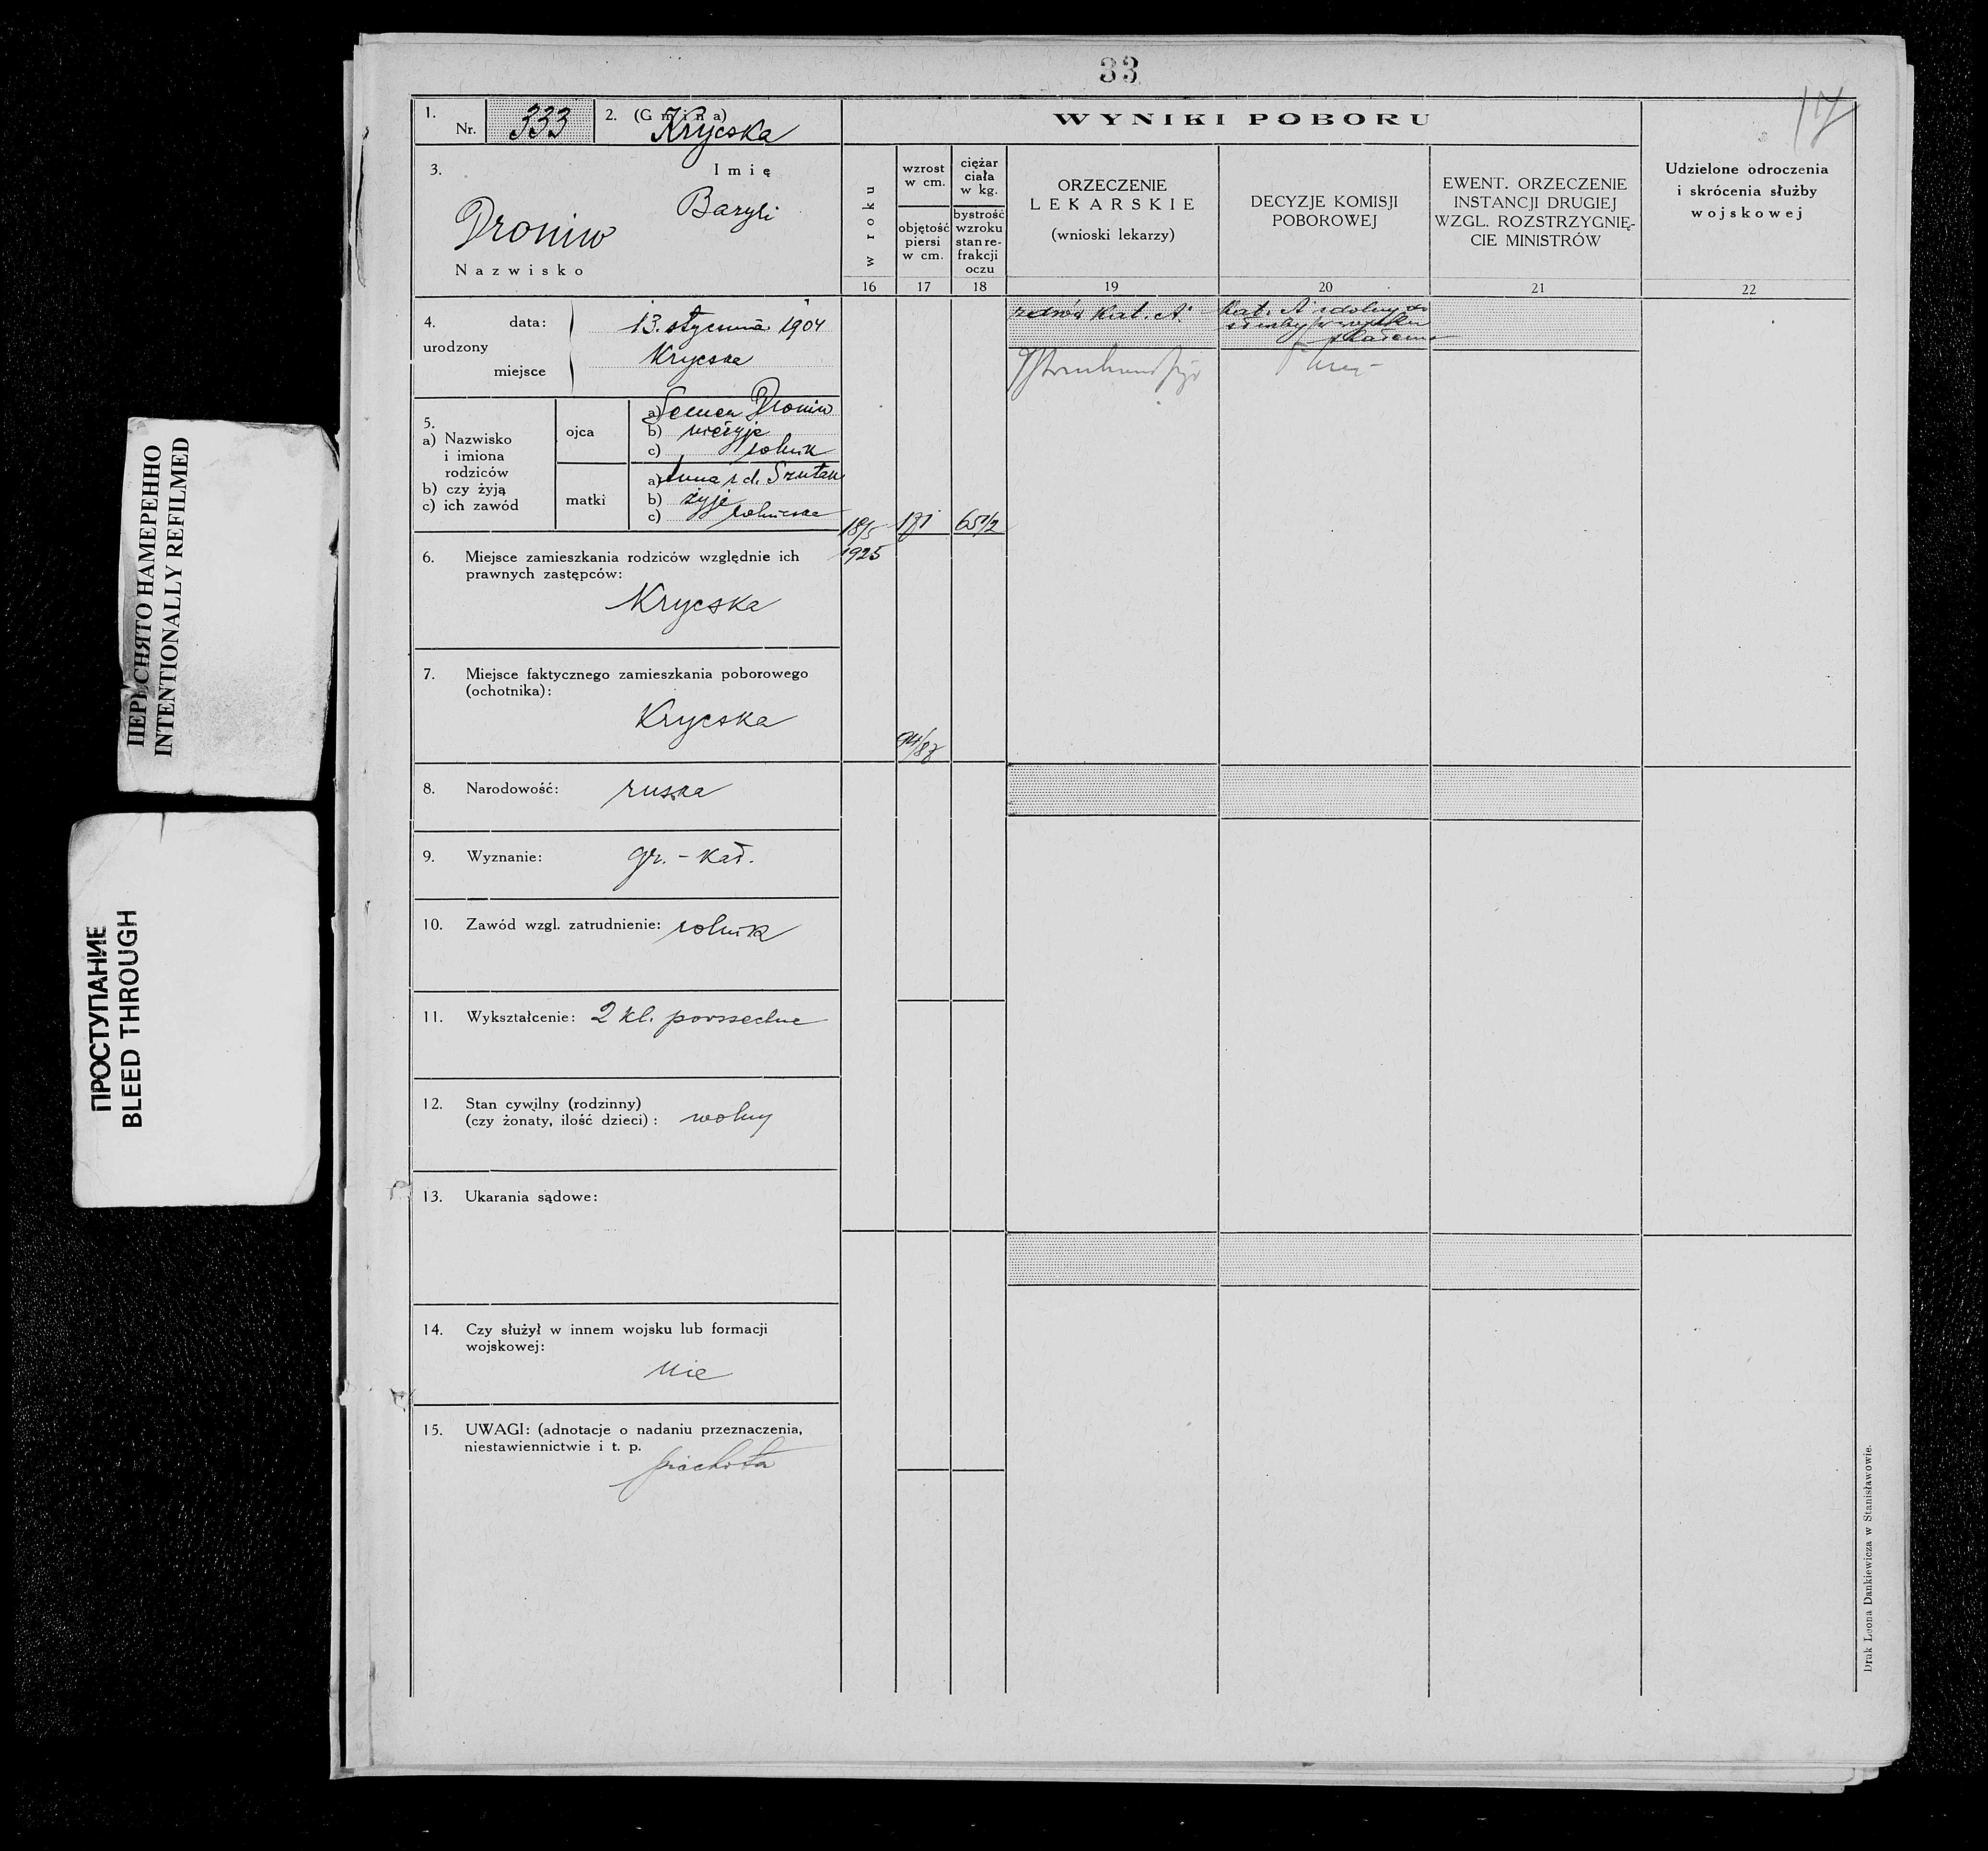 33
17
1. Nr. 333 2. (Gmina) Krycska
3. Imię
Bazyli
Droniw
Nazwisko
4. urodzony data: 13. stycznia 1904
miejsce Krycska
5.
a) Nazwisko i imiona rodziców
b) czy żyją
c) ich zawód
ojca
a) Semen Droniw
b) nieżyje
c) rolnik
matki
a) Anna z d.
b) żyje
c) rolniczka
6. Miejsce zamieszkania rodziców względnie ich
prawnych zastępców:
Krycska
7. Miejsce faktycznego zamieszkania poborowego
(ochotnika):
Krycska
8. Narodowość: ruska
9. Wyznanie: gr. - kat.
10. Zawód wzgl. zatrudnienie: rolnik
11. Wykształcenie: 2 kl. powszechne
12. Stan cywilny (rodzinny)
(czy żonaty, ilość dzieci): wolny
13. Ukarania sądowe:
14. Czy służył w innem wojsku lub formacji
wojskowej:
nie
15. UWAGI: (adnotacje o nadaniu przeznaczenia,
niestawiennictwie i t. p.
piechota
WYNIKI POBORU
w roku
16
wzrost
w cm.
objętość
piersi
w cm.
17
ciężar
ciała
w kg.
bystrość
wzroku
stan re-
frakcji
oczu
18
ORZECZENIE
LEKARSKIE
(wnioski lekarzy)
19
DECYZJE KOMISJI
POBOROWEJ
20
EWENT. ORZECZENIE
INSTANCJI DRUGIEJ
WZGL. ROZSTRZYGNIĘ-
CIE MINISTRÓW
21
Udzielone odroczenia
i skrócenia służby
wojskowej
22
18/5
1925
171
65 1/2
94/87
zdrów Kat. A
Kat. A zdolny do
służby w wojsku
stałem
Druk Leona Dankiewicza w Stanisławowie.
ПЕРЕСНЯТО НАМЕРЕННО
INTENTIONALLY REFILMED
ПРОСТУПАНИЕ
BLEED THROUGH